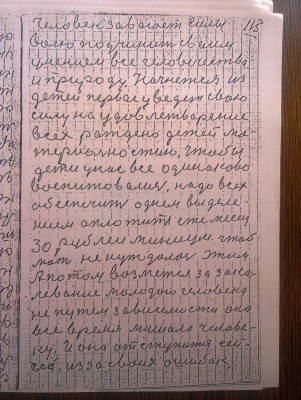 Человек завоюет силы 113
волю подчинит своим
умением все человечества
и природу. Начнется из
детей первое уведет свою
силу на удовлетварение
всех ратдено детей ма-
териальностию, чтобы
дети у нас все одинаково
воспитовались, надо всех
обспечить одним выделе-
нием оплотить еже месец
30 рублей миниум. чтоб
мать не нуждалась этим
А потом возмется за зака-
левание молодого человека
не путем зависимости она
все время мишала челове-
ку. И она отступится сей-
час, из за своих ошибак